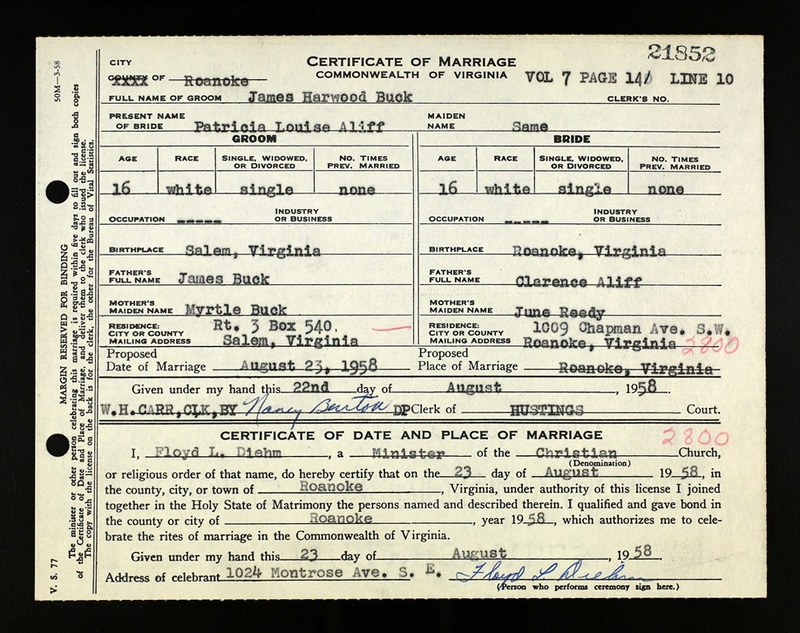 21852
CITY
XXXX OF Roanoke
CERTIFICATE OF MARRIAGE
COMMONWEALTH OF VIRGINIA
VOL 7 PAGE 141 LINE 10
FULL NAME OF GROOM James Harwood Buck CLERK'S NO.
PRESENT NAME OF BRIDE Patricia Louise Aliff MAIDEN NAME Same
GROOM BRIDE
AGE RACE SINGLE, WIDOWED, OR DIVORCED NO. TIMES PREV. MARRIED AGE RACE SINGLE, WIDOWED, OR DIVORCED NO. TIMES PREV. MARRIED
16 white single none 16 white single none
OCCUPATION ----- INDUSTRY OR BUSINESS OCCUPATION ----- INDUSTRY OR BUSINESS
BIRTHPLACE Salem, Virginia BIRTHPLACE Roanoke, Virginia
FATHER'S FULL NAME James Buck FATHER'S FULL NAME Clarence Aliff
MOTHER'S MAIDEN NAME Myrtle Buck MOTHER'S MAIDEN NAME June Reedy
RESIDENCE: CITY OR COUNTY MAILING ADDRESS Rt. 3 Box 540. Salem, Virginia RESIDENCE: CITY OR COUNTY MAILING ADDRESS 1009 Chapman Ave. S.W. Roanoke, Virginia 2800
Proposed Date of Marriage August 23, 1958 Proposed Place of Marriage Roanoke, Virginia
Given under my hand this 22nd day of August, 1958
W.H.CARR,CLK,BY Nancy Benton DP Clerk of HUSTINGS Court.
CERTIFICATE OF DATE AND PLACE OF MARRIAGE 2800
I, Floyd L. Diehm, a Minister of the Christian Church,
(Denomination)
or religious order of that name, do hereby certify that on the 23 day of August 1958, in
the county, city, or town of Roanoke, Virginia, under authority of this license I joined
together in the Holy State of Matrimony the persons named and described therein. I qualified and gave bond in
the county or city of Roanoke, year 1958, which authorizes me to cele-
brate the rites of marriage in the Commonwealth of Virginia.
Given under my hand this 23 day of August, 1958
Address of celebrant 1024 Montrose Ave. S. E. Floyd L Diehm
(Person who performs ceremony sign here.)
50M—3-58
MARGIN RESERVED FOR BINDING
The minister or other person celebrating this marriage is required within five days to fill out and sign both copies
of the Certificate of Date and Place of Marriage, and deliver them to the clerk who issued the license.
The copy with the license on the back is for the clerk, the other for the Bureau of Vital Statistics.
V. S. 77